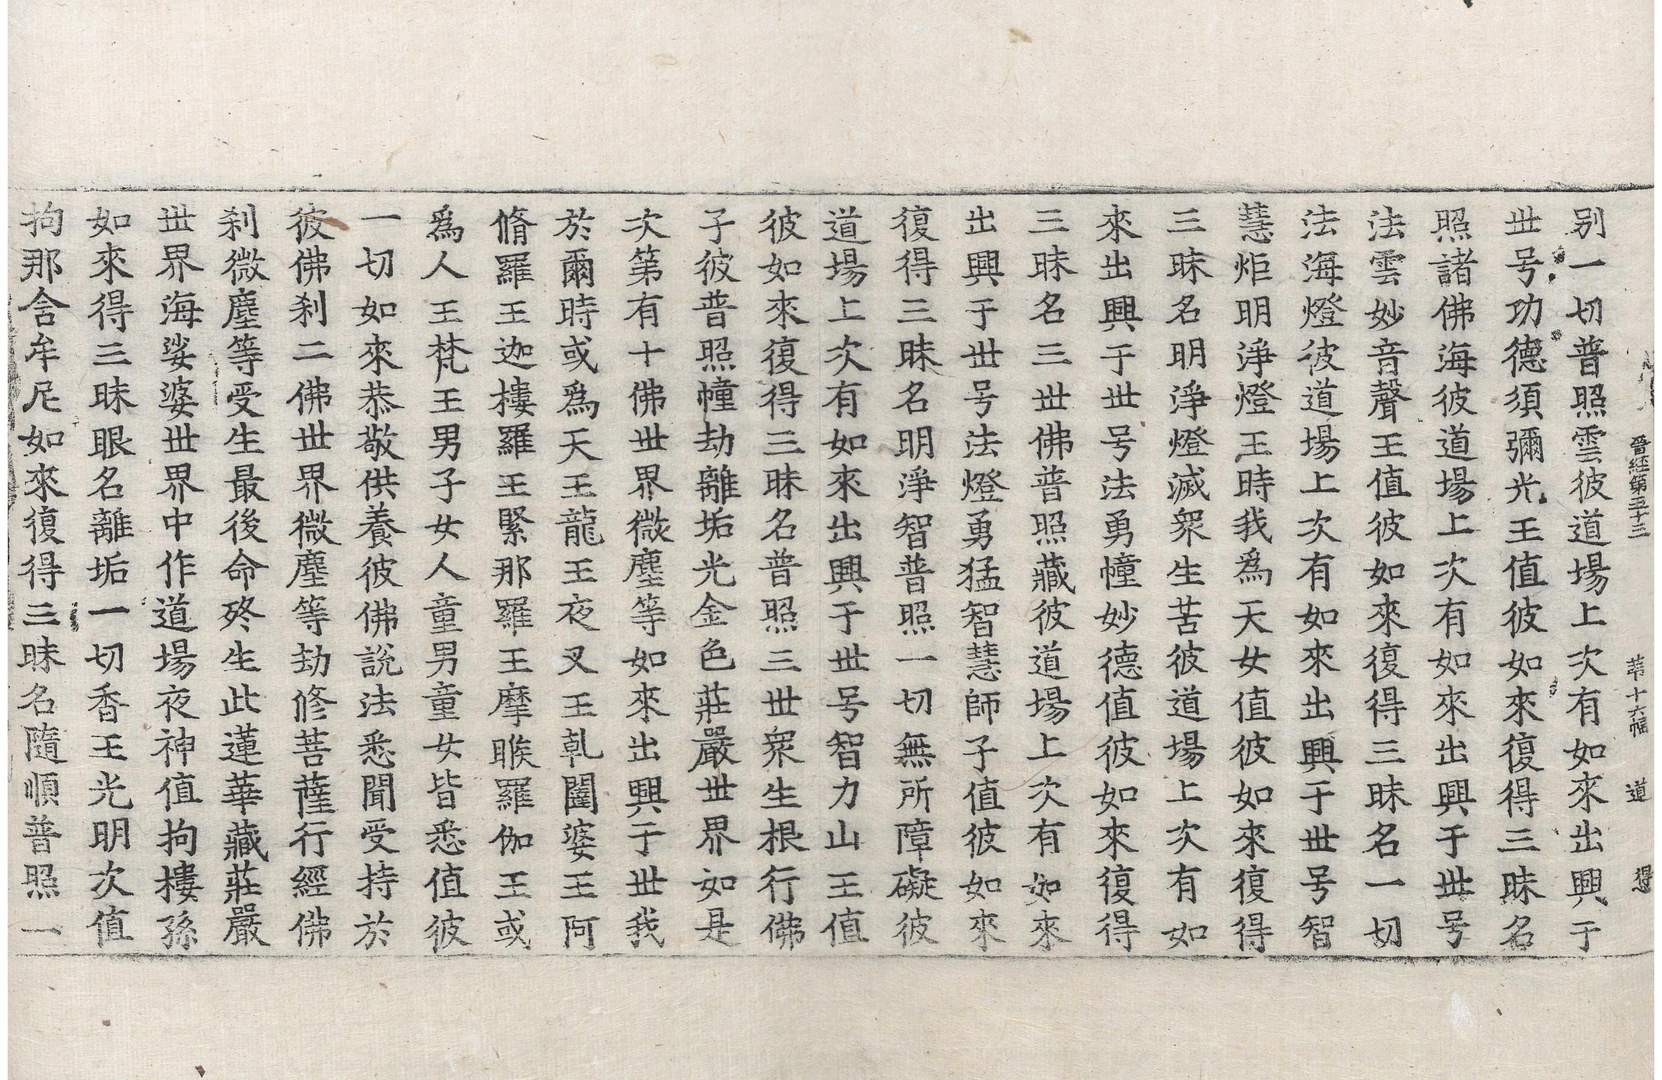 晉經第五十三 第十六幅 道 得
別一切普照雲彼道場上次有如來出興于
世号功德須彌光王值彼如來復得三昧名
照諸佛海彼道場上次有如來出興于世号
法雲妙音聲王值彼如來復得三昧名一切
法海燈彼道場上次有如來出興于世号智
慧炬明淨燈王時我爲天女值彼如來復得
三昧名明淨燈滅衆生苦彼道場上次有如
來出興于世号法勇幢妙德值彼如來復得
三昧名三世佛普照藏彼道場上次有如來
出興于世号法燈勇猛智慧師子值彼如來
復得三昧名明淨智普照一切無所障礙彼
道場上次有如來出興于世号智力山王值
彼如來復得三昧名普照三世衆生根行佛
子彼普照幢劫離垢光金色莊嚴世界如是
次第有十佛世界微塵等如來出興于世我
於爾時或爲天王龍王夜叉王乹闥婆王阿
脩羅王迦樓羅王緊那羅王摩睺羅伽王或
爲人王梵王男子女人童男童女皆悉值彼
一切如來恭敬供養彼佛說法悉聞受持於
彼佛刹二佛世界微塵等劫修菩薩行經佛
刹微塵等受生最後命終生此蓮華藏莊嚴
世界海娑婆世界中作道場夜神值拘樓孫
如來得三昧眼名離垢一切香王光明次值
拘那含牟尼如來復得三昧名隨順普照一